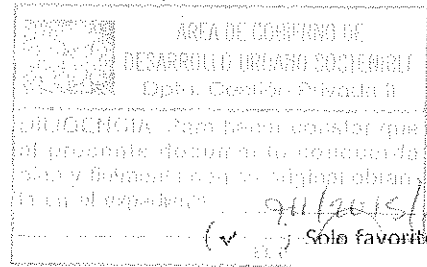 ÁREA DE GOBIERNO DE
DESARROLLO URBANO SOSTENIBLE
Dpto. Gestión Privada II
DILIGENCIA Para hacer constar que
el presente documento concuerda
y fielmente con su original obran-
te en el expediente
711/2015/
Solo favorit